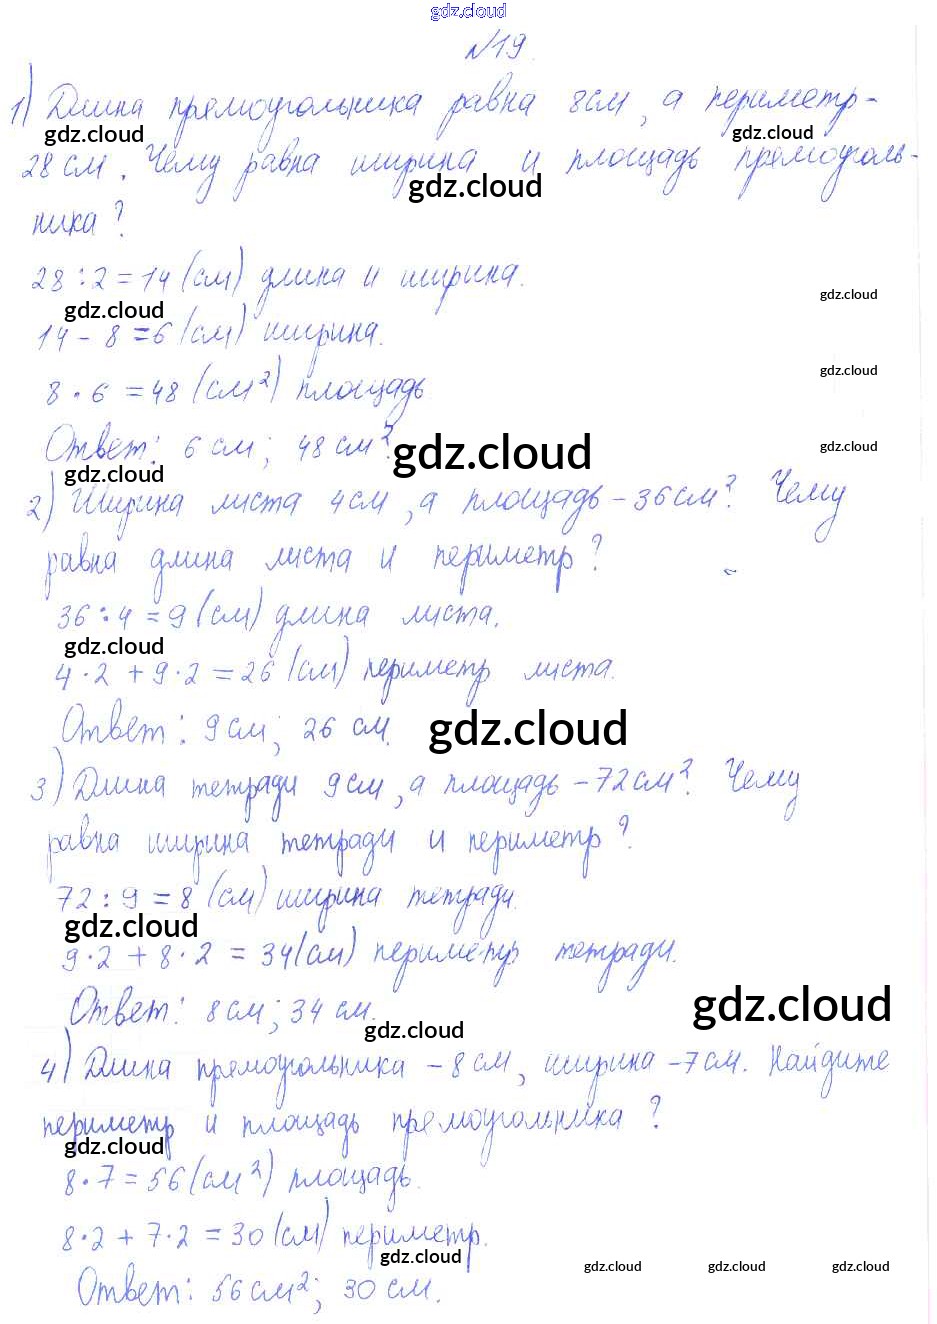 gdz.cloud
№19.
1) Длина прямоугольника равна 8см, а периметр-
gdz.cloud gdz.cloud
28 см. Чему равна ширина и площадь прямоуголь-
gdz.cloud
ника?
28 : 2 = 14 (см) длина и ширина.
gdz.cloud gdz.cloud
14 - 8 = 6 (см) ширина.
gdz.cloud
8 · 6 = 48 (см²) площадь
Ответ: 6 см; 48 см².
gdz.cloud gdz.cloud
gdz.cloud
2) Ширина листа 4см, а площадь - 36см². Чему
равна длина листа и периметр?
36 : 4 = 9 (см) длина листа.
gdz.cloud
4 · 2 + 9 · 2 = 26 (см) периметр листа.
Ответ: 9 см; 26 см.
gdz.cloud
3) Длина тетради 9см, а площадь - 72см². Чему
равна ширина тетради и периметр?
72 : 9 = 8 (см) ширина тетради.
gdz.cloud
9 · 2 + 8 · 2 = 34 (см) периметр тетради.
Ответ: 8 см; 34 см.
gdz.cloud
gdz.cloud
4) Длина прямоугольника - 8 см, ширина - 7 см. Найдите
периметр и площадь прямоугольника?
gdz.cloud
8 · 7 = 56 (см²) площадь.
8 · 2 + 7 · 2 = 30 (см) периметр.
gdz.cloud gdz.cloud gdz.cloud gdz.cloud
Ответ: 56 см²; 30 см.